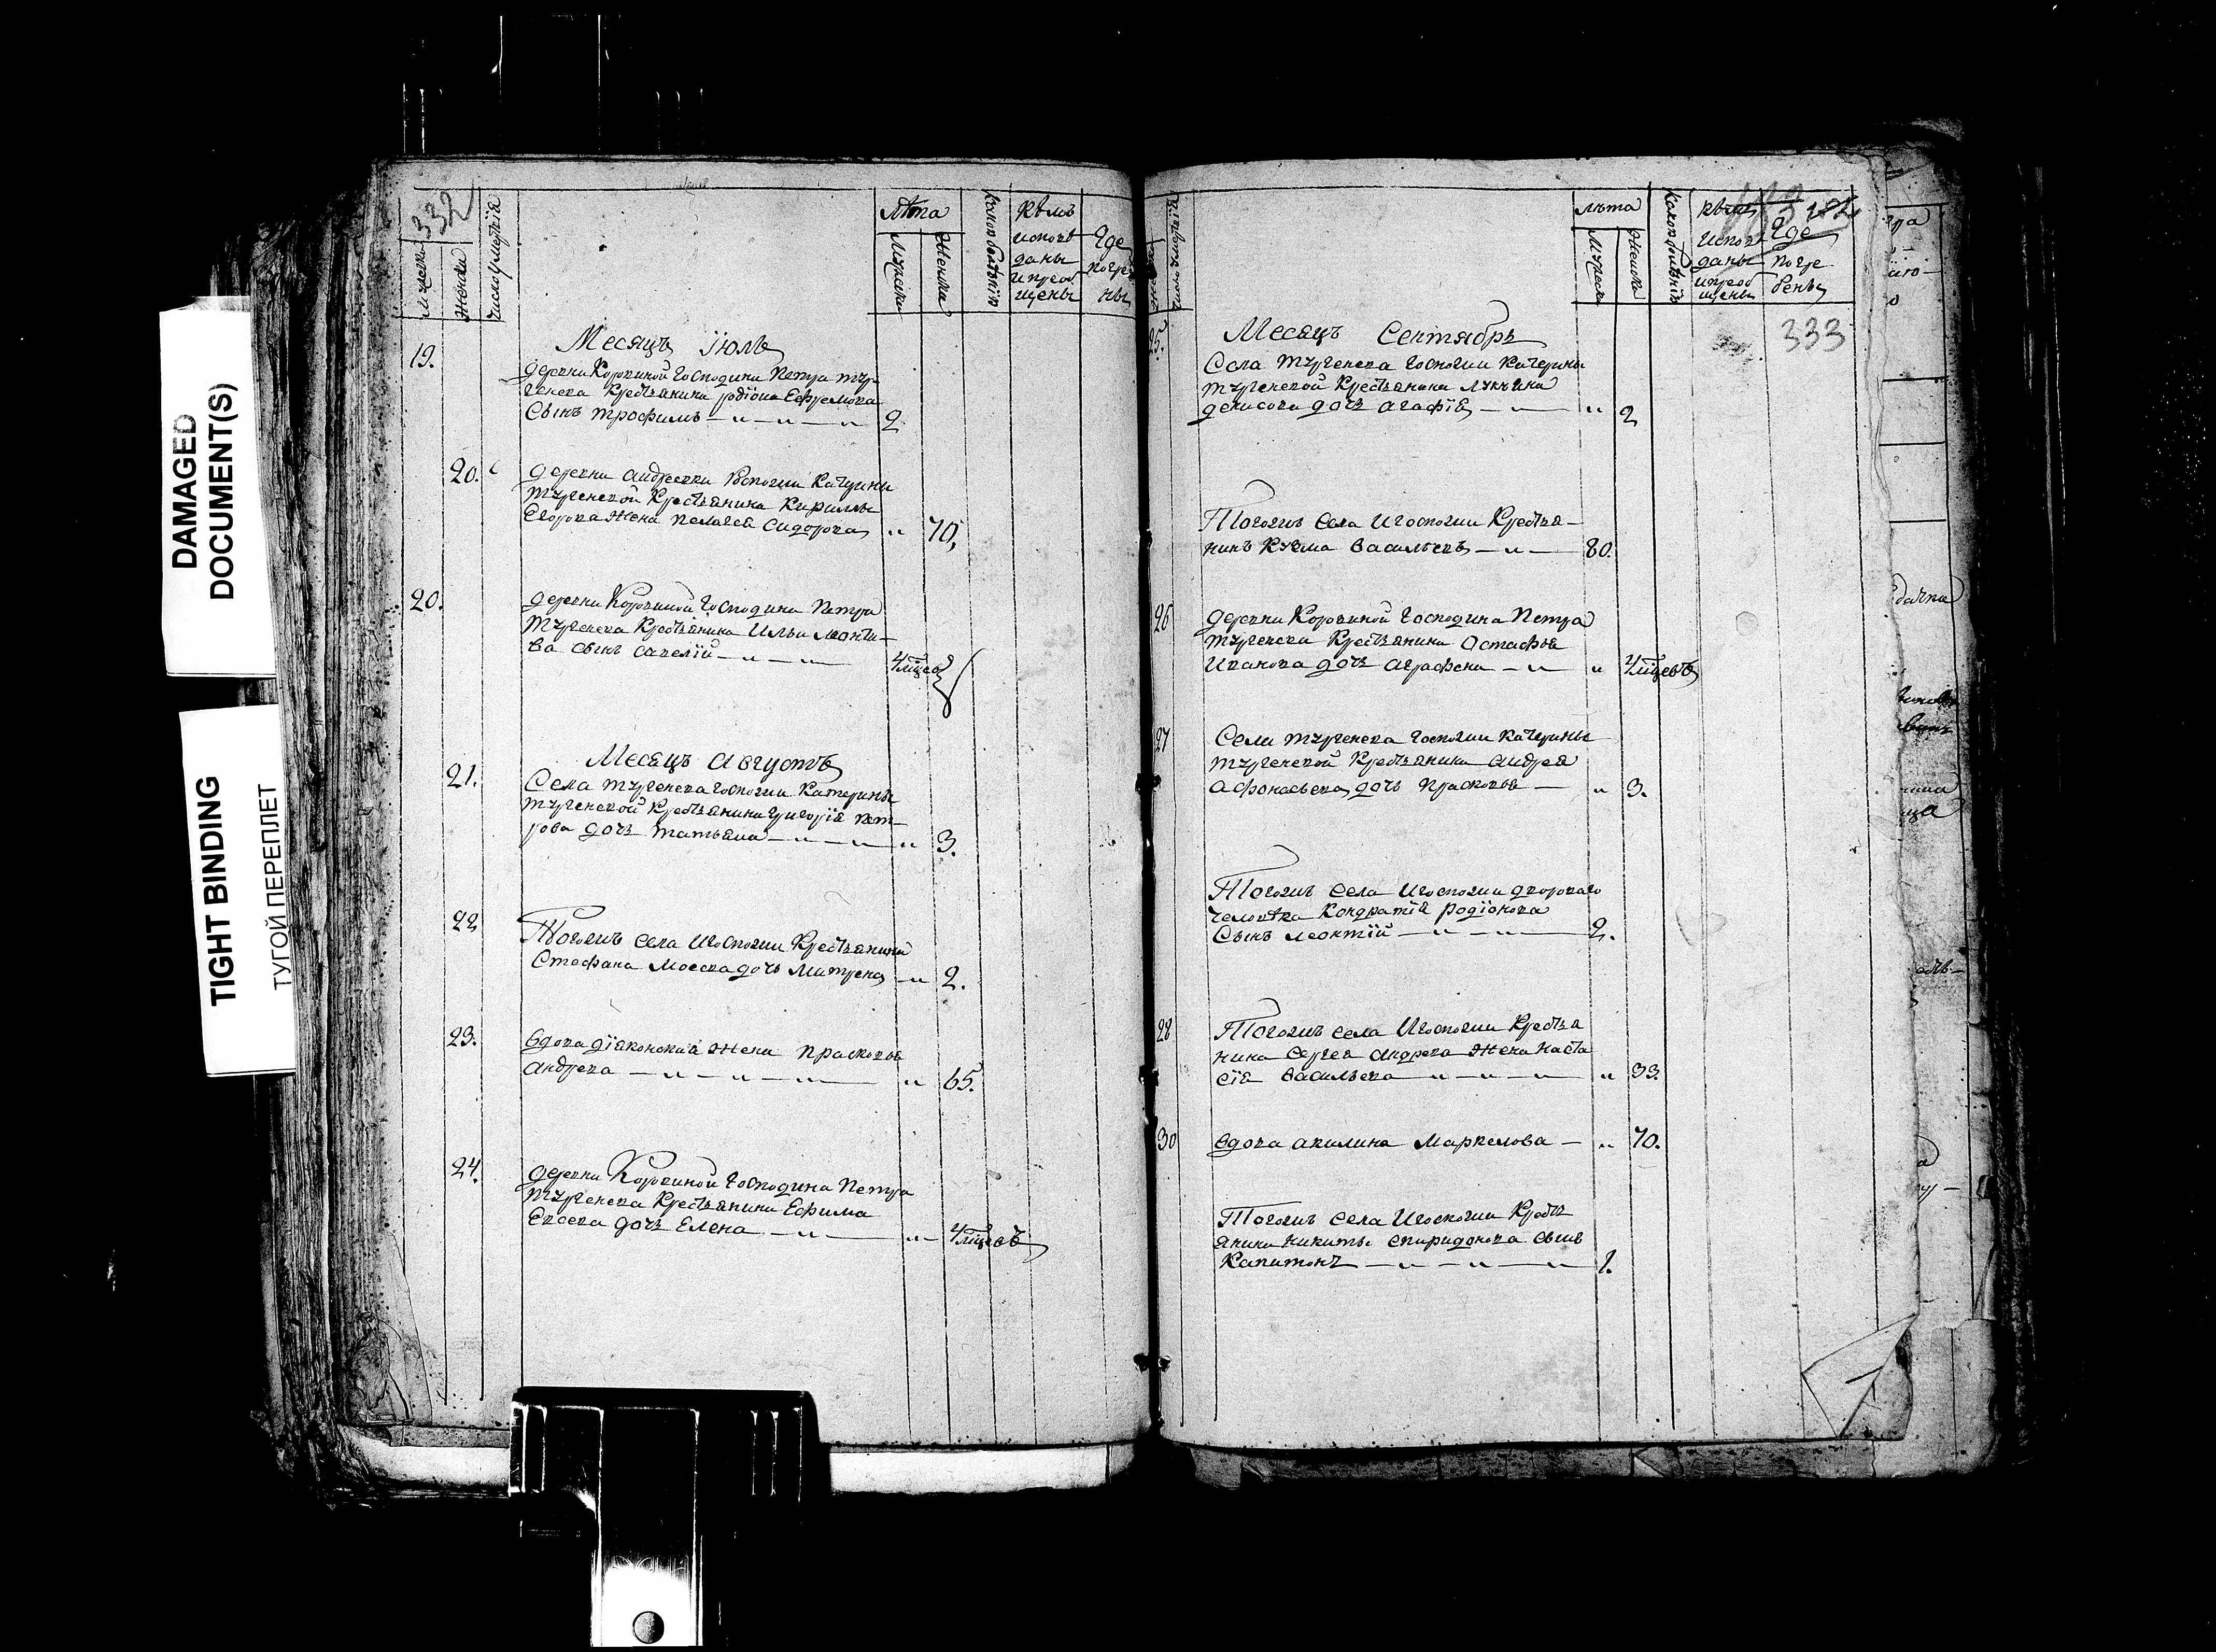 DAMAGED
DOCUMENT(S)
TIGHT BINDING
ТУГОЙ ПЕРЕПЛЕТ
332
Женска
Число умертвія
Лѣта
Мужска
Женска
Какою болѣзнію
Кѣмъ
исповѣ
даны
и преоб
щены
Где
погре
ны
Месяцъ Іюль
19.
деревни Коровиной Господина Петра Тур-
генева Крестьянина Родіона Ефремова
Сынъ Трофимъ — „ — „ — „ 2
20.
деревни Андреевки Госпожи Катерины
Тургеневой Крестьянина Кириллы
Егорова Жена Пелагея Сидорова „ 70,
20.
деревни Коровиной Господина Петра
Тургенева Крестьянина Ильи Леонть-
ва сынъ Савелій — „ — „ —
Месяцъ Августъ
21.
Села Тургенева Госпожи Катерины
Тургеневой Крестьянина Григорія Пет-
рова дочь Татьяна — „ — „ — „ 3.
22
Тогожъ села и Госпожи Крестьянина
Стефана Мосева дочь Матрена — „ 2.
23.
Вдова діяконская Жена Прасковья
Андреева — „ — „ — „ — „ 65.
24.
деревни Коровиной Господина Петра
Тургенева Крестьянина Ефима
дочь Елена — „ — „
Число умертвія
Лѣта
Мужска
Женска
Какою болѣзнію
Кѣмъ
Испов
даны
и преоб
щены
Где
погре
бены
333
Месяцъ Сентябрь
25.
Села Тургенева Госпожи Катерины
Тургеневой Крестьянина
Денисова дочь Агафія — „ — „ 2
Тогожъ Села и Госпожи Крестья-
нинъ Кузма Васильевъ — „ — 80.
26
деревни Коровиной Господина Петра
Тургенева Крестьянина Остафья
Иванова дочь Аграфена — „ „
27
Села Тургенева Госпожи Катерины
Тургеневой Крестьянина Андрея
Афонасьева дочь Прасковья — „ 3.
Тогожъ Села и Госпожи дворового
человѣка Кондратія Родіонова
Сынъ Леонтій — „ — „ — 2.
28
Тогожъ села и Госпожи Крестья
нина Сергея Андреева Жена Наста
сія Васильева — „ — „ — „ 33.
30
Вдова Акилина Маркелова — „ 70.
Тогожъ Села и Госпожи Кресть
янина Никиты Спиридонова сынъ
Капитонъ — „ — „ — „ — 1.